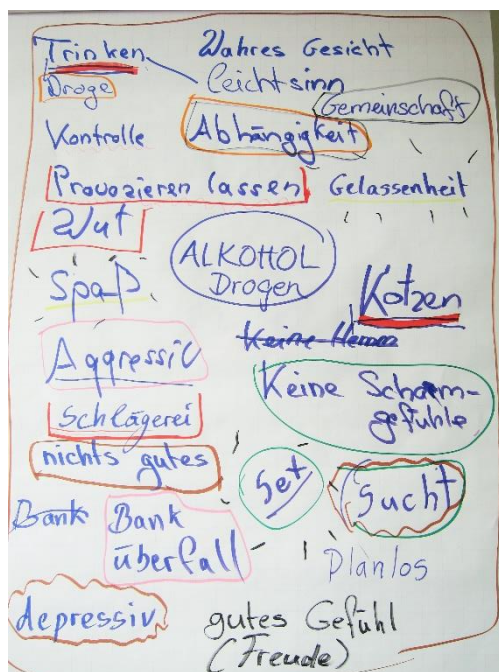 Trinken Wahres Gesicht
Droge Leichtsinn
Gemeinschaft
Kontrolle Abhängigkeit
Provozieren lassen Gelassenheit
Wut
ALKOHOL
Drogen
Spaß
Kotzen
Aggressiv
Keine Scham-
gefühle
Schlägerei
nichts gutes
Set
Sucht
Bank
Bank
überfall
Planlos
depressiv
gutes Gefühl
(Freude)